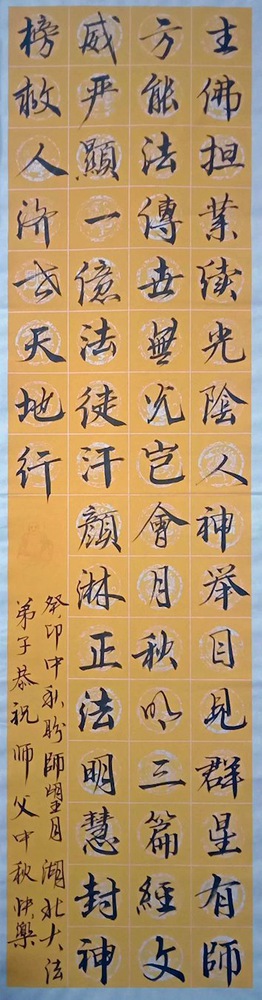 主佛担業续光陰人神举目見群星有師
方能法傳世無岂會月秋明三篇經文
威严顯一億法徒汗顔淋正法明慧封神
榜救人济世天地行
癸卯中秋盼師望月湖北大法
弟子恭祝師父中秋快樂